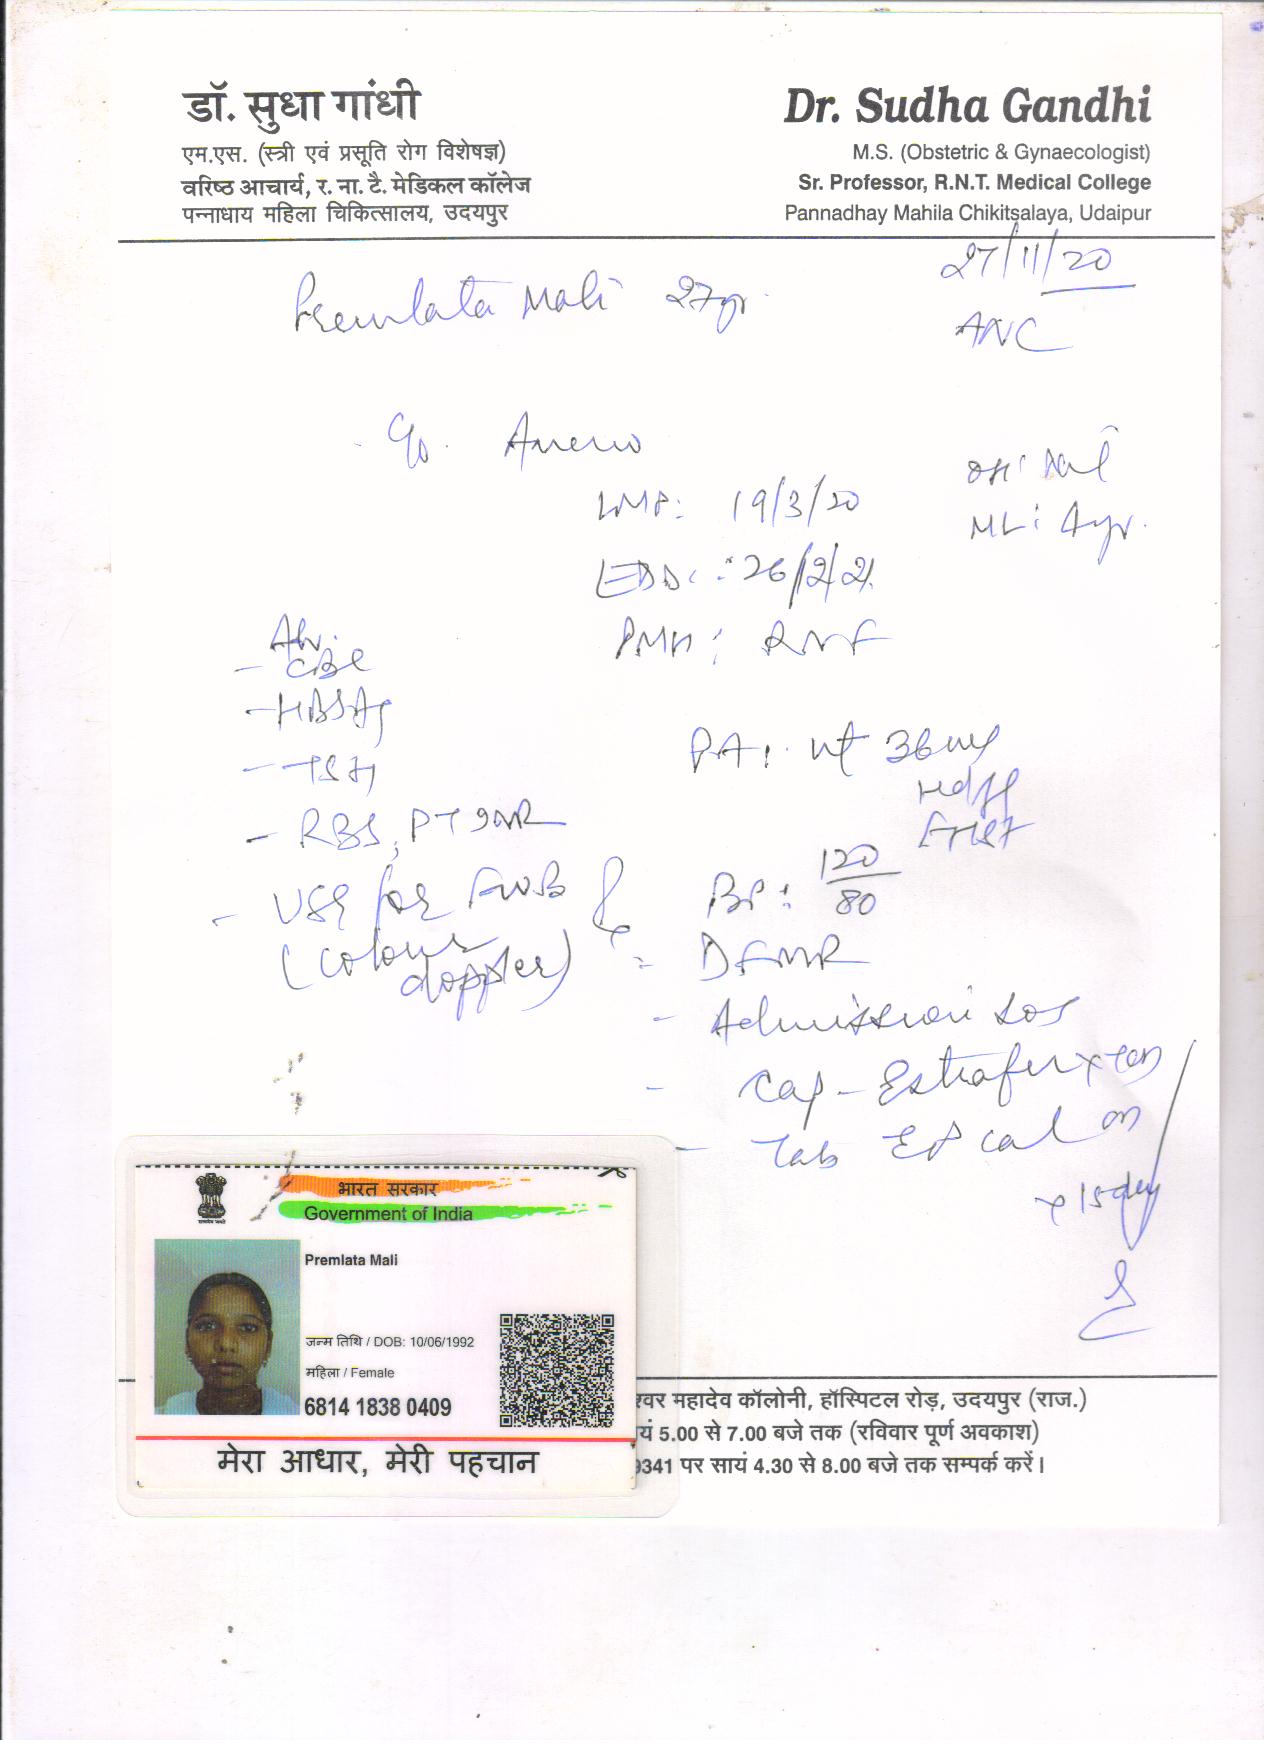 डॉ. सुधा गांधी
एम.एस. (स्त्री एवं प्रसूति रोग विशेषज्ञ)
वरिष्ठ आचार्य, र. ना. टै. मेडिकल कॉलेज
पन्नाधाय महिला चिकित्सालय, उदयपुर
Dr. Sudha Gandhi
M.S. (Obstetric & Gynaecologist)
Sr. Professor, R.N.T. Medical College
Pannadhay Mahila Chikitsalaya, Udaipur
27/11/20
Premlata Mali 27yr.
ANC
LMP: 19/3/20
ML: 4yr.
EDD: 26/12/21
PMH: RNF
Adv.
- CBC
- HBSAg
- TSH
- RBS, PT INR
- USG for FWB
(colour doppler)
PA: ut 36
BP: 120/80
- DFMR
- Admission SOS
- Cap - Estrafer x
- Tab cal
x 15 day
भारत सरकार
Government of India
Premlata Mali
जन्म तिथि / DOB: 10/06/1992
महिला / Female
6814 1838 0409
मेरा आधार, मेरी पहचान
महादेव कॉलोनी, हॉस्पिटल रोड़, उदयपुर (राज.)
5.00 से 7.00 बजे तक (रविवार पूर्ण अवकाश)
9341 पर सायं 4.30 से 8.00 बजे तक सम्पर्क करें।